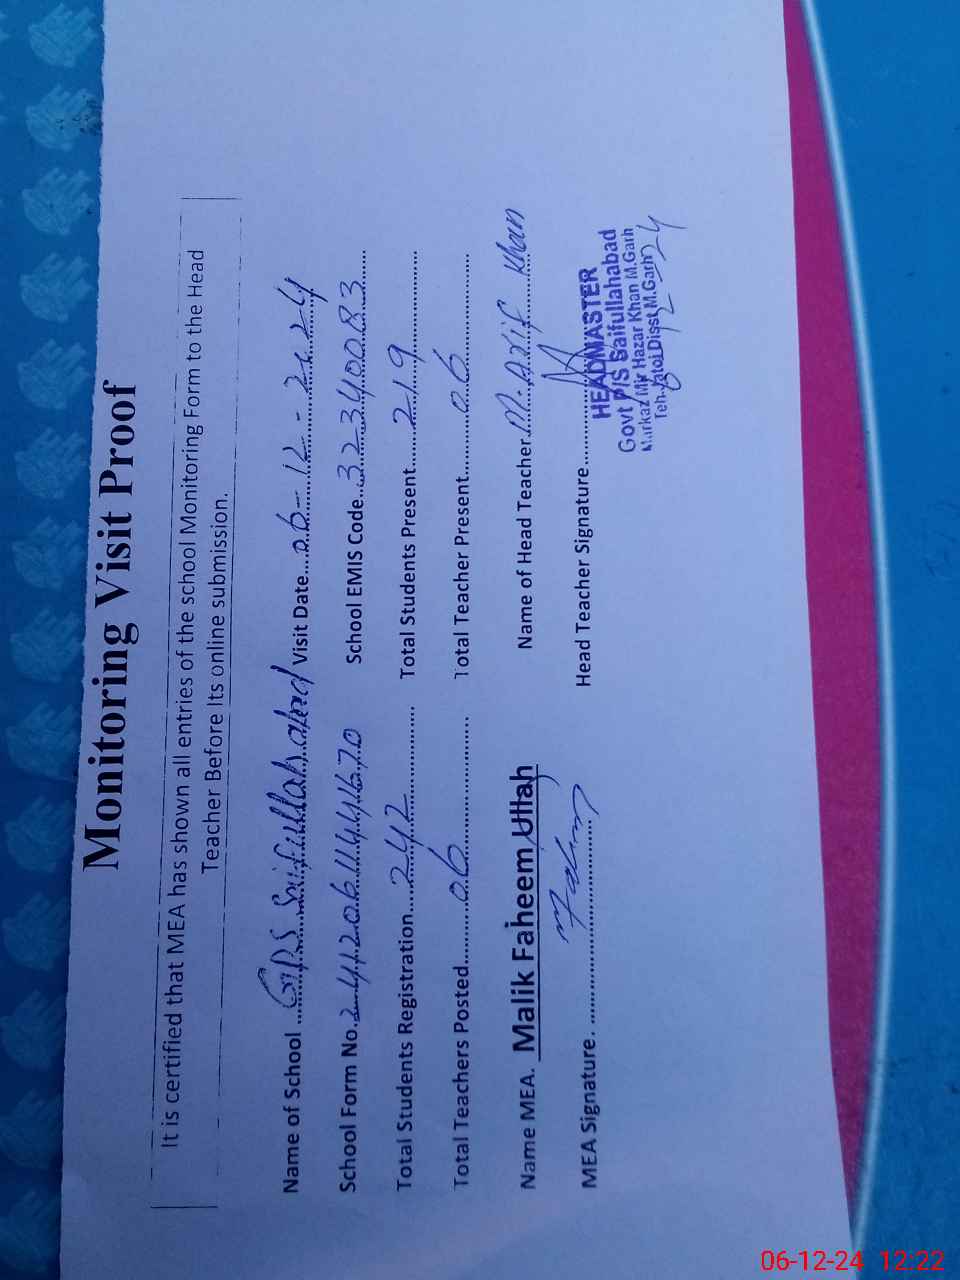 Monitoring Visit Proof
It is certified that MEA has shown all entries of the school Monitoring Form to the Head
Teacher Before Its online submission.
Name of School ......GPS Saifullahabad Visit Date....06-12-2024
School Form No.24120611441670 School EMIS Code...32340083
Total Students Registration...242............ Total Students Present......219............
Total Teachers Posted........06............ Total Teacher Present........06............
Name MEA. Malik Faheem Ullah Name of Head Teacher.M.Arif Khan
MEA Signature. ............ Head Teacher Signature............
HEADMASTER
Govt P/S Saifullahabad
Markaz Mir Hazar Khan M.Garh
Teh.Jatoi Disst M.Garh
06-12-24 12:22